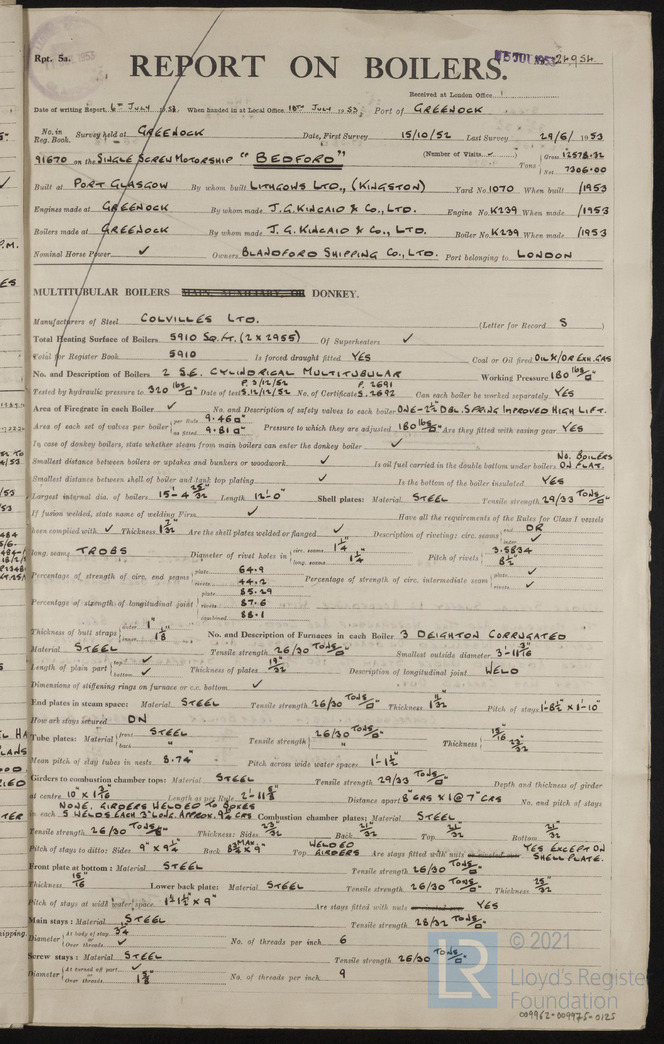 Rpt. 5a.
15 JUL 1953 24954
REPORT ON BOILERS.
Received at London Office
Date of writing Report 6TH JULY 1953. When handed in at Local Office 10TH JULY 1953. Port of GREENOCK
No. in Reg. Book. Survey held at GREENOCK Date, First Survey 15/10/52 Last Survey 29/6/1953
91670 on the SINGLE SCREW MOTORSHIP "BEDFORD" (Number of Visits ) Tons Gross 12578.32 Net 7306.00
Built at PORT GLASGOW By whom built LITHGOWS LTD., (KINGSTON) Yard No. 1070 When built /1953
Engines made at GREENOCK By whom made J.G. KINCAID & CO., LTD. Engine No. K239 When made /1953
Boilers made at GREENOCK By whom made J.G. KINCAID & CO., LTD. Boiler No. K239 When made /1953
Nominal Horse Power ✓ Owners BLANDFORD SHIPPING CO., LTD. Port belonging to LONDON
MULTITUBULAR BOILERS MAIN, AUXILIARY, OR DONKEY.
Manufacturers of Steel COLVILLES LTD. (Letter for Record S )
Total Heating Surface of Boilers 5910 SQ.FT. (2 X 2955) Of Superheaters ✓
Total for Register Book 5910 Is forced draught fitted YES Coal or Oil fired OIL &/OR EXH. GAS
No. and Description of Boilers 2 S.E. CYLINDRICAL MULTITUBULAR Working Pressure 180 lbs/□"
Tested by hydraulic pressure to 320 lbs/□" Date of test P. 3/12/52 S. 12/12/52 No. of Certificate P. 2691 S. 2692 Can each boiler be worked separately YES
Area of Firegrate in each Boiler ✓ No. and Description of safety valves to each boiler ONE-2½" DBL. SPRING IMPROVED HIGH LIFT.
Area of each set of valves per boiler per Rule 9.46 □" as fitted 9.81 □" Pressure to which they are adjusted 180 lbs/□" Are they fitted with easing gear YES
In case of donkey boilers, state whether steam from main boilers can enter the donkey boiler ✓
Smallest distance between boilers or uptakes and bunkers or woodwork ✓ Is oil fuel carried in the double bottom under boilers NO. BOILERS ON FLAT.
Smallest distance between shell of boiler and tank top plating ✓ Is the bottom of the boiler insulated YES
Largest internal dia. of boilers 15'-4 25/32" Length 12'-0" Shell plates: Material STEEL Tensile strength 29/33 TONS/□"
If fusion welded, state name of welding Firm ✓ Have all the requirements of the Rules for Class I vessels
been complied with ✓ Thickness 1 7/32" Are the shell plates welded or flanged ✓ Description of riveting: circ. seams end DR inter. ✓
long. seams TRDBS Diameter of rivet holes in circ. seams 1¼" long. seams 1¼" Pitch of rivets 3.5834 8½"
Percentage of strength of circ. end seams plate 64.9 rivets 44.2 Percentage of strength of circ. intermediate seam plate ✓ rivets ✓
Percentage of strength of longitudinal joint plate 85.29 rivets 87.6 combined 88.1
Thickness of butt straps outer 1" inner 1⅛" No. and Description of Furnaces in each Boiler 3 DEIGHTON CORRUGATED
Material STEEL Tensile strength 26/30 TONS/□" Smallest outside diameter 3'-11 3/16"
Length of plain part top ✓ bottom ✓ Thickness of plates 19/32" Description of longitudinal joint WELD
Dimensions of stiffening rings on furnace or c.c. bottom ✓
End plates in steam space: Material STEEL Tensile strength 26/30 TONS/□" Thickness 1 11/32" Pitch of stays 1'-8½" X 1'-10"
How are stays secured DN
Tube plates: Material front STEEL back " Tensile strength 26/30 TONS/□" " Thickness 15/16" 23/32"
Mean pitch of stay tubes in nests 8.74" Pitch across wide water spaces 1'-1½"
Girders to combustion chamber tops: Material STEEL Tensile strength 29/33 TONS/□" Depth and thickness of girder
at centre 10" X 1 3/16" Length as per Rule 2'-11⅝" Distance apart 8" CRS X 1 @ 7" CRS No. and pitch of stays
in each NONE. GIRDERS WELDED TO BOXES 5 WELDS EACH 3" LONG APPROX. 9¼ CRS Combustion chamber plates: Material STEEL
Tensile strength 26/30 TONS/□" Thickness: Sides 23/32" Back 21/32" Top 21/32" Bottom 21/32"
Pitch of stays to ditto: Sides 9" X 9¼" Back 8¾ MAX. X 9" Top WELDED GIRDERS Are stays fitted with nuts or riveted over YES EXCEPT ON SHELL PLATE.
Front plate at bottom: Material STEEL Tensile strength 26/30 TONS/□"
Thickness 15/16" Lower back plate: Material STEEL Tensile strength 26/30 TONS/□" Thickness 25/32"
Pitch of stays at wide water space 1'-1½" X 9" Are stays fitted with nuts or riveted over YES
Main stays: Material STEEL Tensile strength 28/32 TONS/□"
Diameter At body of stay, or Over threads ✓ No. of threads per inch 6
Screw stays: Material STEEL Tensile strength 26/30 TONS/□"
Diameter At turned off part, or Over threads ✓ 1⅝" No. of threads per inch 9
© 2021
LR Lloyd's Register Foundation
009962-009975-0125